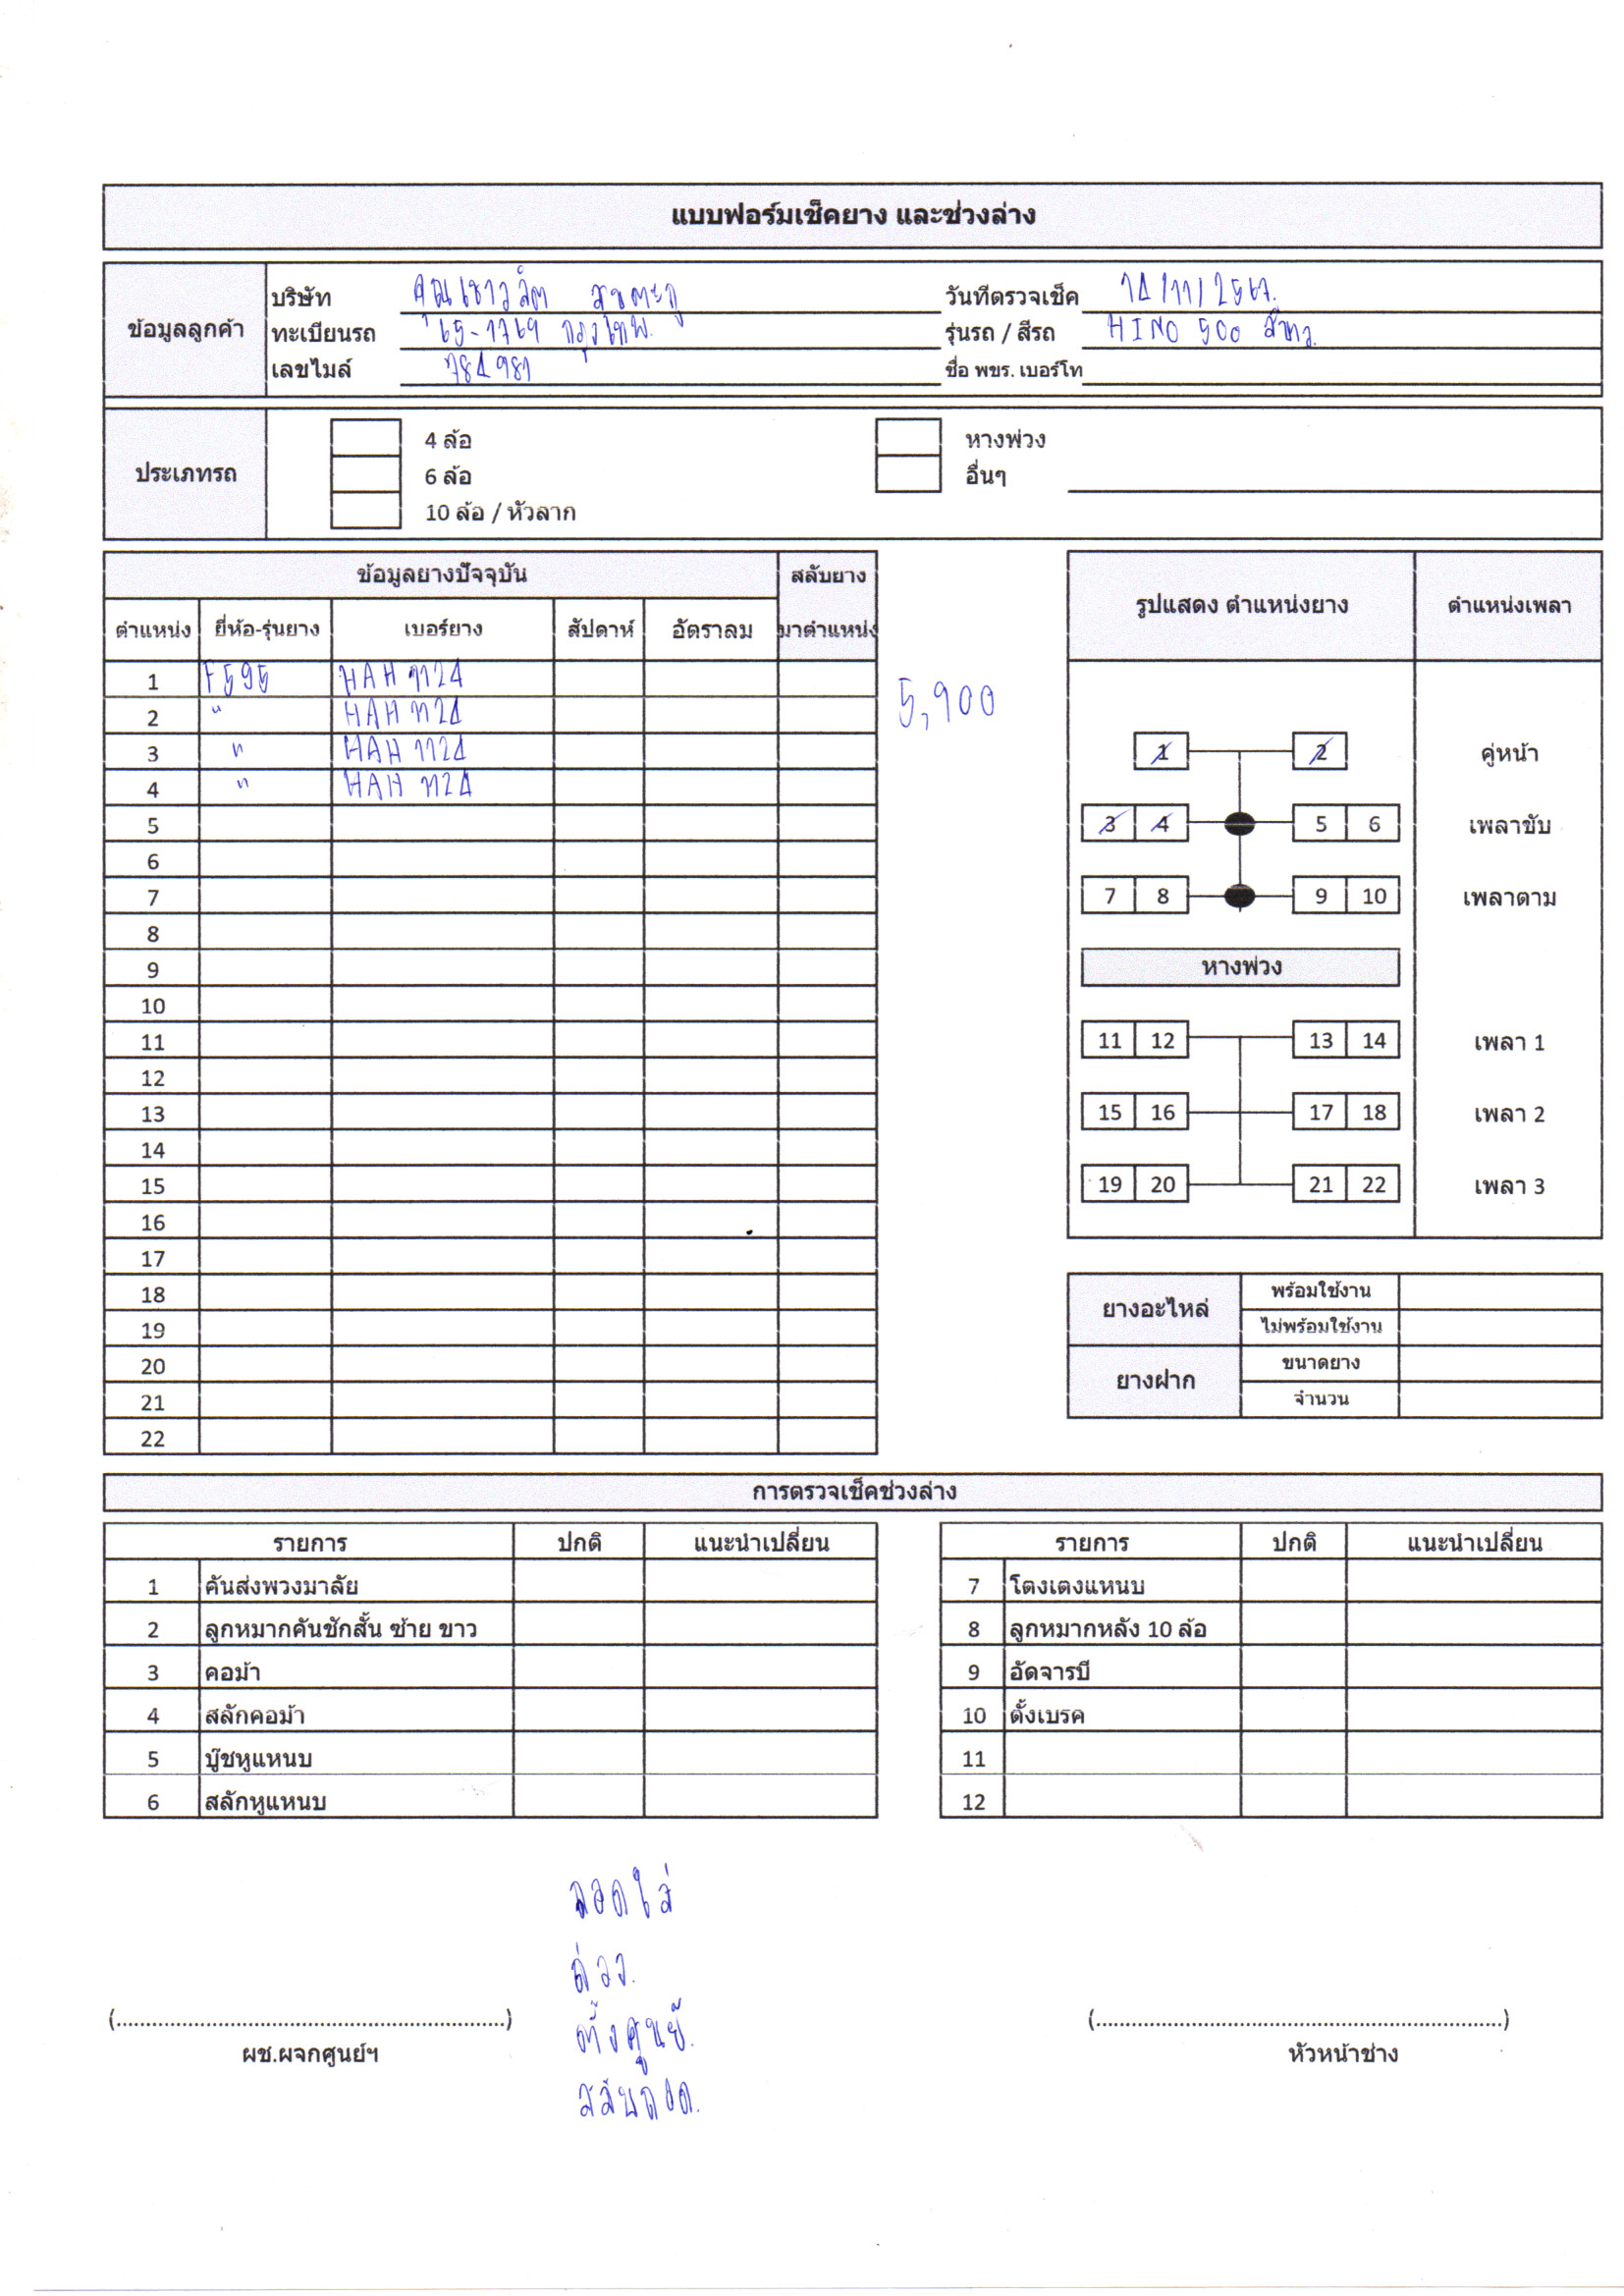 แบบฟอร์มเช็คยาง และช่วงล่าง
ข้อมูลลูกค้า
บริษัท คุณเชาวลิต
วันที่ตรวจเช็ค 14/11/2567.
ทะเบียนรถ 65-1769 กรุงเทพ.
รุ่นรถ / สีรถ HINO 500 สีขาว.
เลขไมล์ 784981
ชื่อ พขร. เบอร์โท
ประเภทรถ
4 ล้อ
หางพ่วง
6 ล้อ
อื่นๆ
10 ล้อ / หัวลาก
ข้อมูลยางปัจจุบัน สลับยาง
ตำแหน่ง ยี่ห้อ-รุ่นยาง เบอร์ยาง สัปดาห์ อัตราลม มาตำแหน่ง
1 F595 HAH 1124
2 " HAH 1124
3 " HAH 1124
4 " HAH 1124
5
6
7
8
9
10
11
12
13
14
15
16
17
18
19
20
21
22
5,900
รูปแสดง ตำแหน่งยาง ตำแหน่งเพลา
1 2 คู่หน้า
3 4 5 6 เพลาขับ
7 8 9 10 เพลาตาม
หางพ่วง
11 12 13 14 เพลา 1
15 16 17 18 เพลา 2
19 20 21 22 เพลา 3
ยางอะไหล่ พร้อมใช้งาน
ไม่พร้อมใช้งาน
ยางฝาก ขนาดยาง
จำนวน
การตรวจเช็คช่วงล่าง
รายการ ปกติ แนะนำเปลี่ยน
1 คันส่งพวงมาลัย
2 ลูกหมากคันชักสั้น ซ้าย ขาว
3 คอม้า
4 สลักคอม้า
5 บู๊ชหูแหนบ
6 สลักหูแหนบ
รายการ ปกติ แนะนำเปลี่ยน
7 โตงเตงแหนบ
8 ลูกหมากหลัง 10 ล้อ
9 อัดจารบี
10 ตั้งเบรค
11
12
ถอดใส่
ถ่วง.
ตั้งศูนย์.
สลับถอด.
(..........................................................)
ผช.ผจกศูนย์ฯ
(..........................................................)
หัวหน้าช่าง